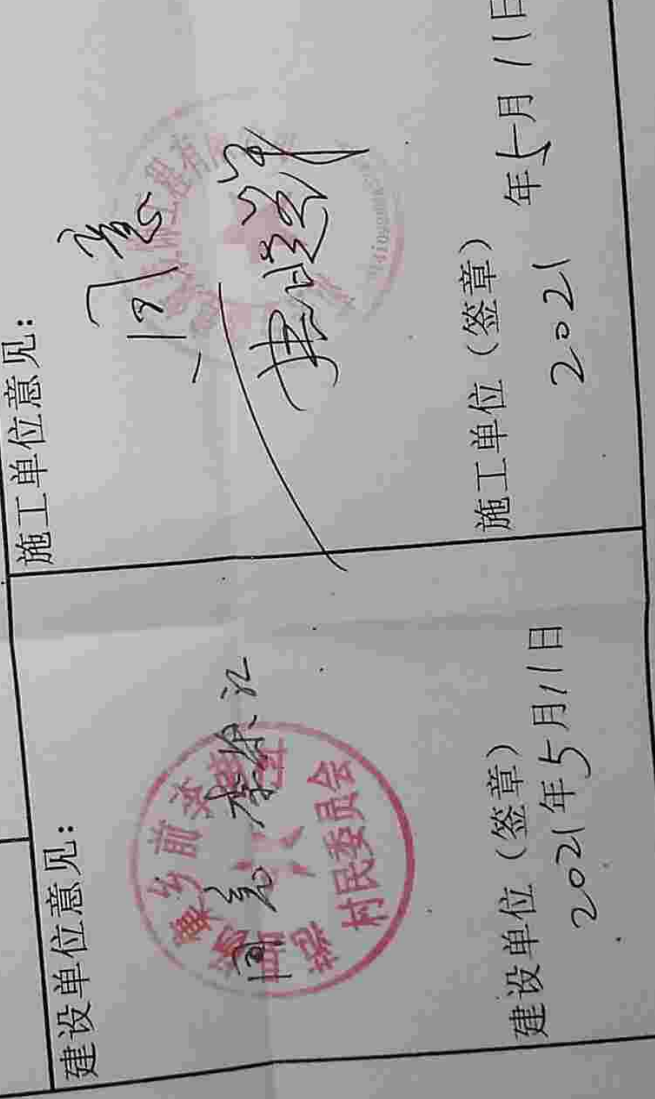 建设单位意见：
同意
村民委员会
建设单位（签章）
2021年5月11日
施工单位意见：
同意
施工单位（签章）
2021年5月11日